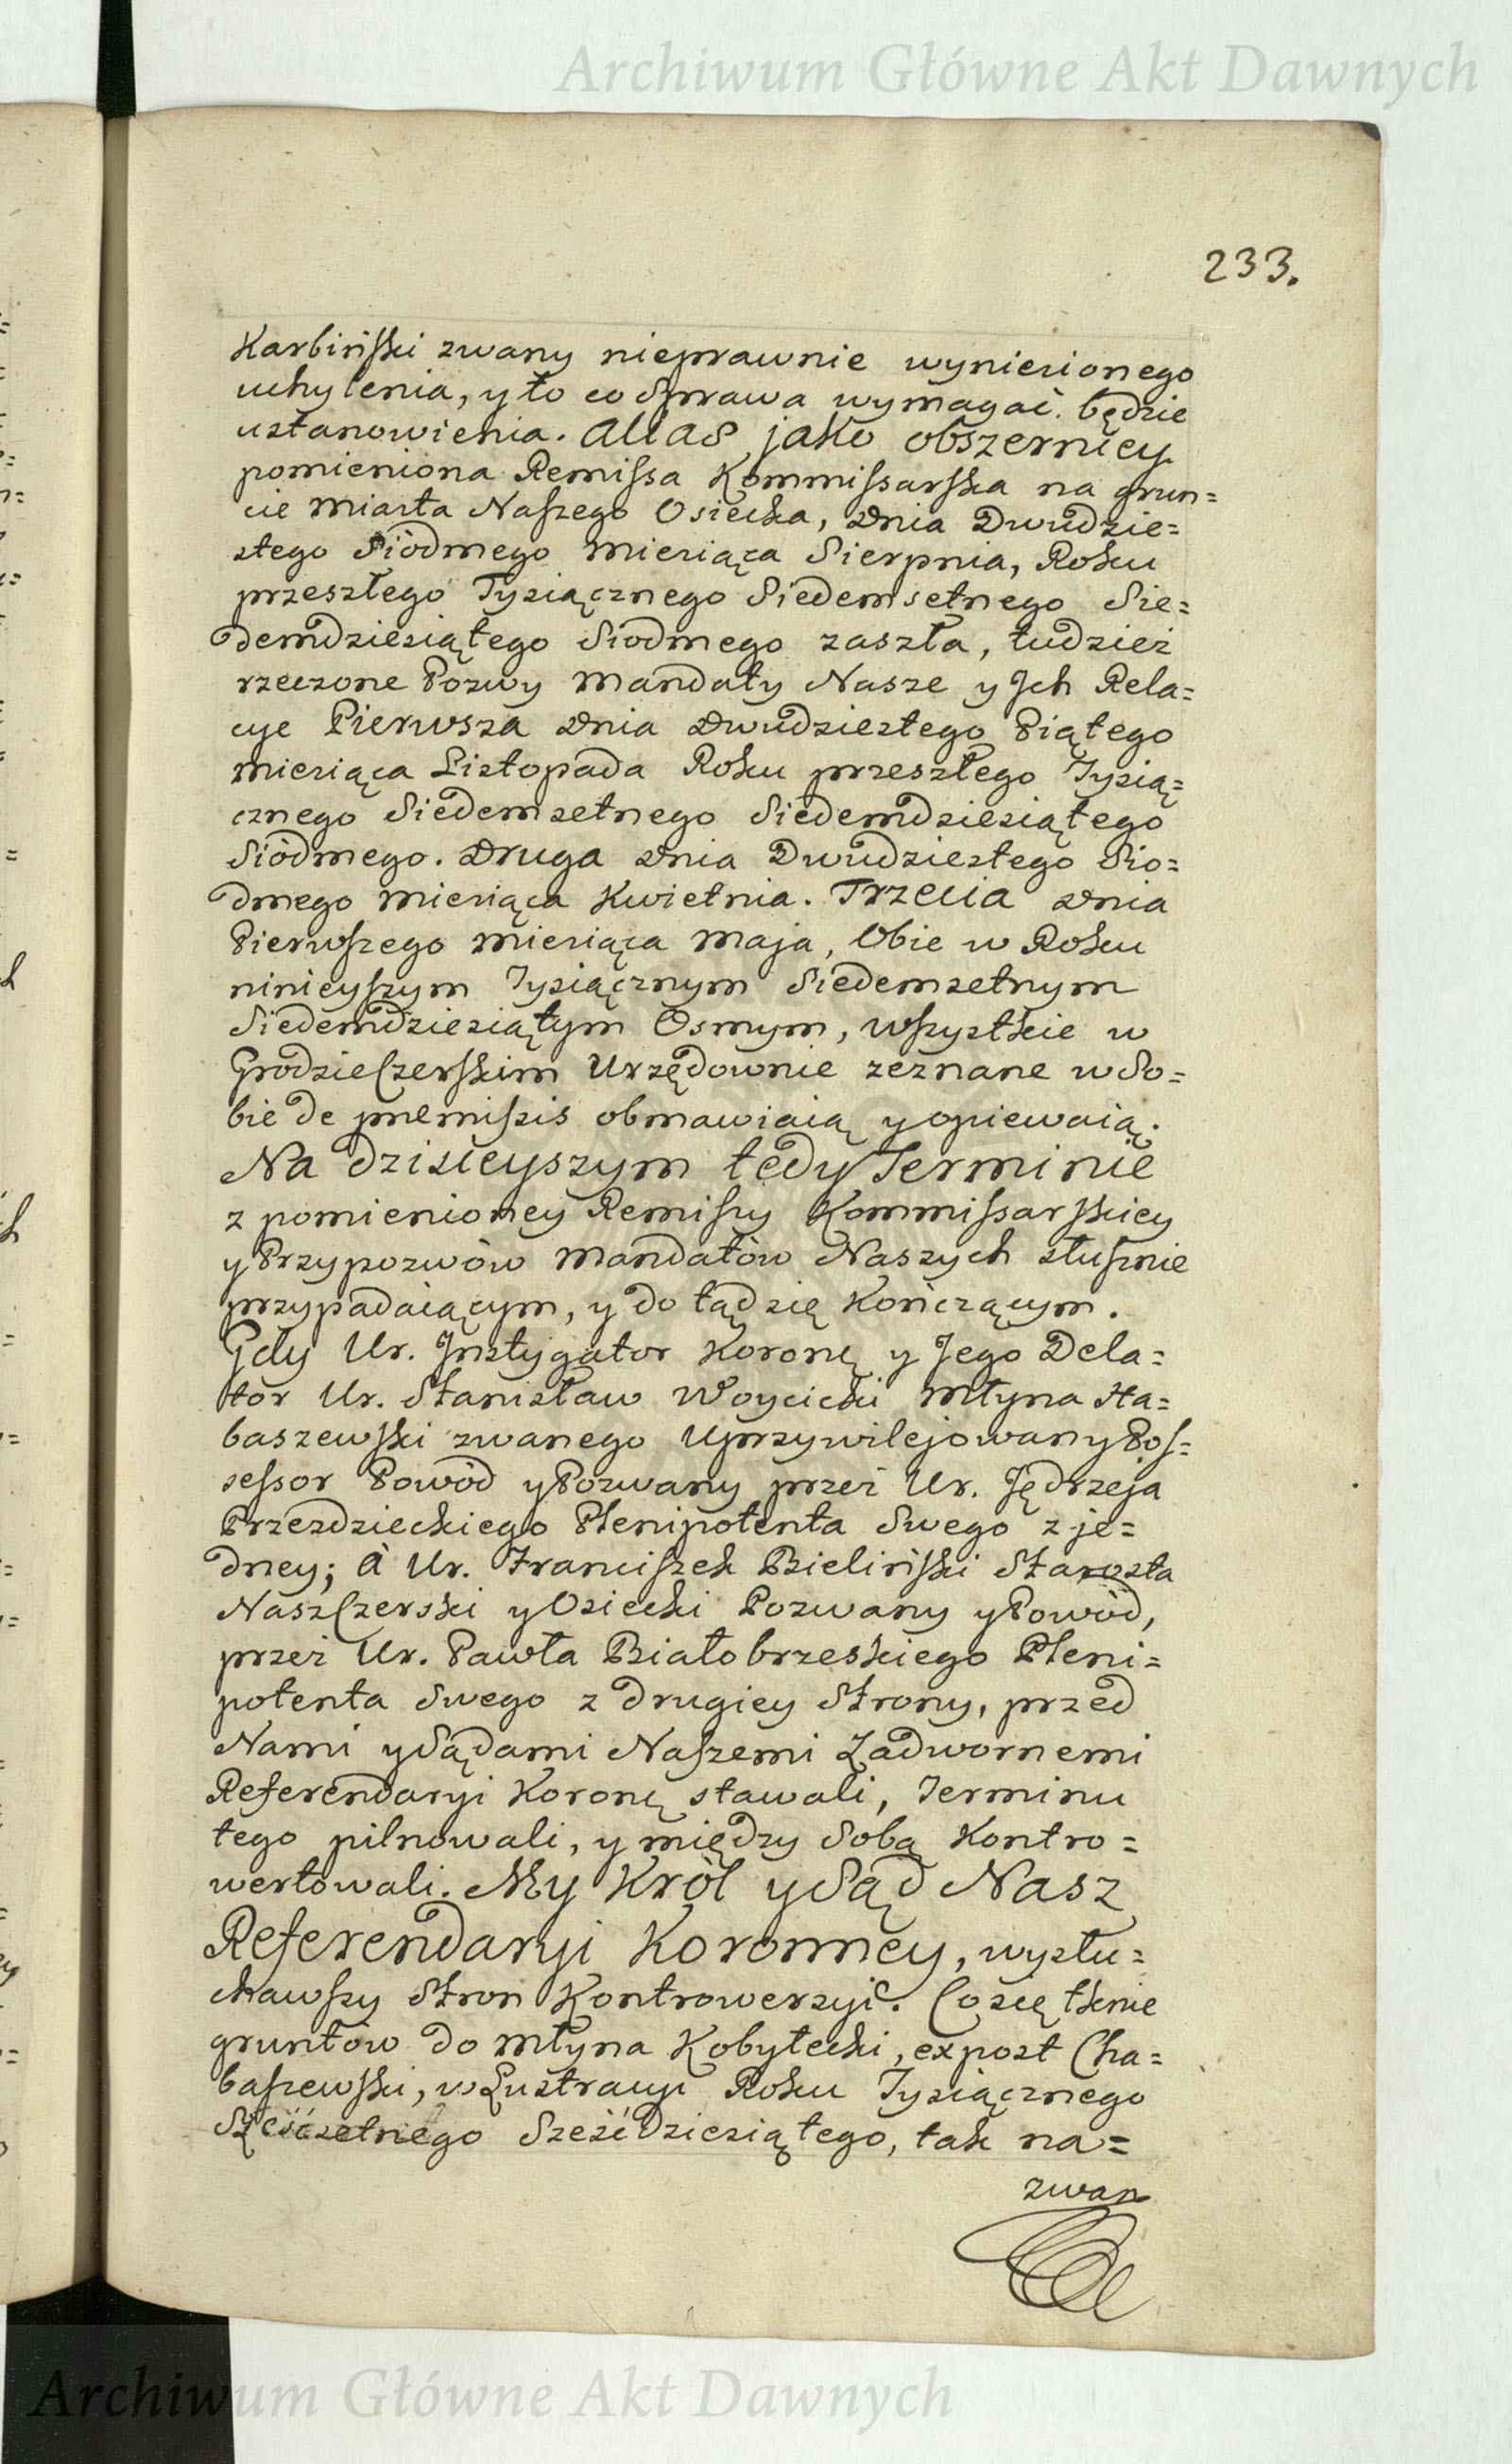 Archiwum Główne Akt Dawnych
233.
Karbiński zwany nieprawnie wyniesionego
uchylenia, y to co Sprawa wymagać będzie
ustanowienia. Alias jako obszerniey
pomieniona Remissa Kommissarska na grun=
cie Miasta Naszego Osiecka, Dnia Dwudzie=
stego Siódmego Miesiąca Sierpnia, Roku
przeszłego Tysiącznego Siedemsetnego Sie=
demdziesiątego Siodmego zaszła, tudzież
rzeczone Pozwy Mandaty Nasze y Jch Rela=
cye Pierwsza Dnia Dwudziestego Piątego
Miesiąca Listopada Roku przeszłego Tysią=
cznego Siedemsetnego Siedemdziesiątego
Siódmego. Druga Dnia Dwudziestego Sio=
dmego Miesiąca Kwietnia. Trzecia Dnia
Pierwszego Miesiąca Maja, Obie w Roku
ninieyszym Tysiącznym Siedemsetnym
Siedemdziesiątym Osmym, wszystkie w
Grodzie Czerskim Urzędownie zeznane w So=
bie de premissis obmawiaią y opiewaią.
Na dzisieyszym tedy Terminie
z pomienioney Remissy Kommissarskiey
y Przypozwów Mandatów Naszych słusznie
przypadaiącym, y do tąd się kończącym.
Gdy Ur. Jnstygator Koronę y Jego Dela=
tor Ur. Stanisław Woycicki Młyna Ha=
baszewski zwanego Uprzywilejowany Pos=
sessor Powód y Pozwany przez Ur. Jędrzeja
Przezdzieckiego Plenipotenta Swego z je=
dney; A Ur. Franciszek Bieliński Starosta
Nasz Czerski y Osiecki Pozwany y Powód,
przez Ur. Pawła Białobrzeskiego Pleni=
potenta Swego z drugiey Strony, przed
Nami y Sądami Naszemi Zadwornemi
Referendaryi Koronę stawali, Terminu
tego pilnowali, y między Sobą Kontro=
wertowali. My Król y Sąd Nasz
Referendaryi Koronney, wysłu=
chawszy Stron Kontrowersyi. Co się tknie
gruntów do Młyna Kobyłecki, ex post Cha=
baszewski, w Lustracyi Roku Tysiącznego
Sześćsetnego Sześćdziesiątego, tak na=
zwan
Archiwum Główne Akt Dawnych